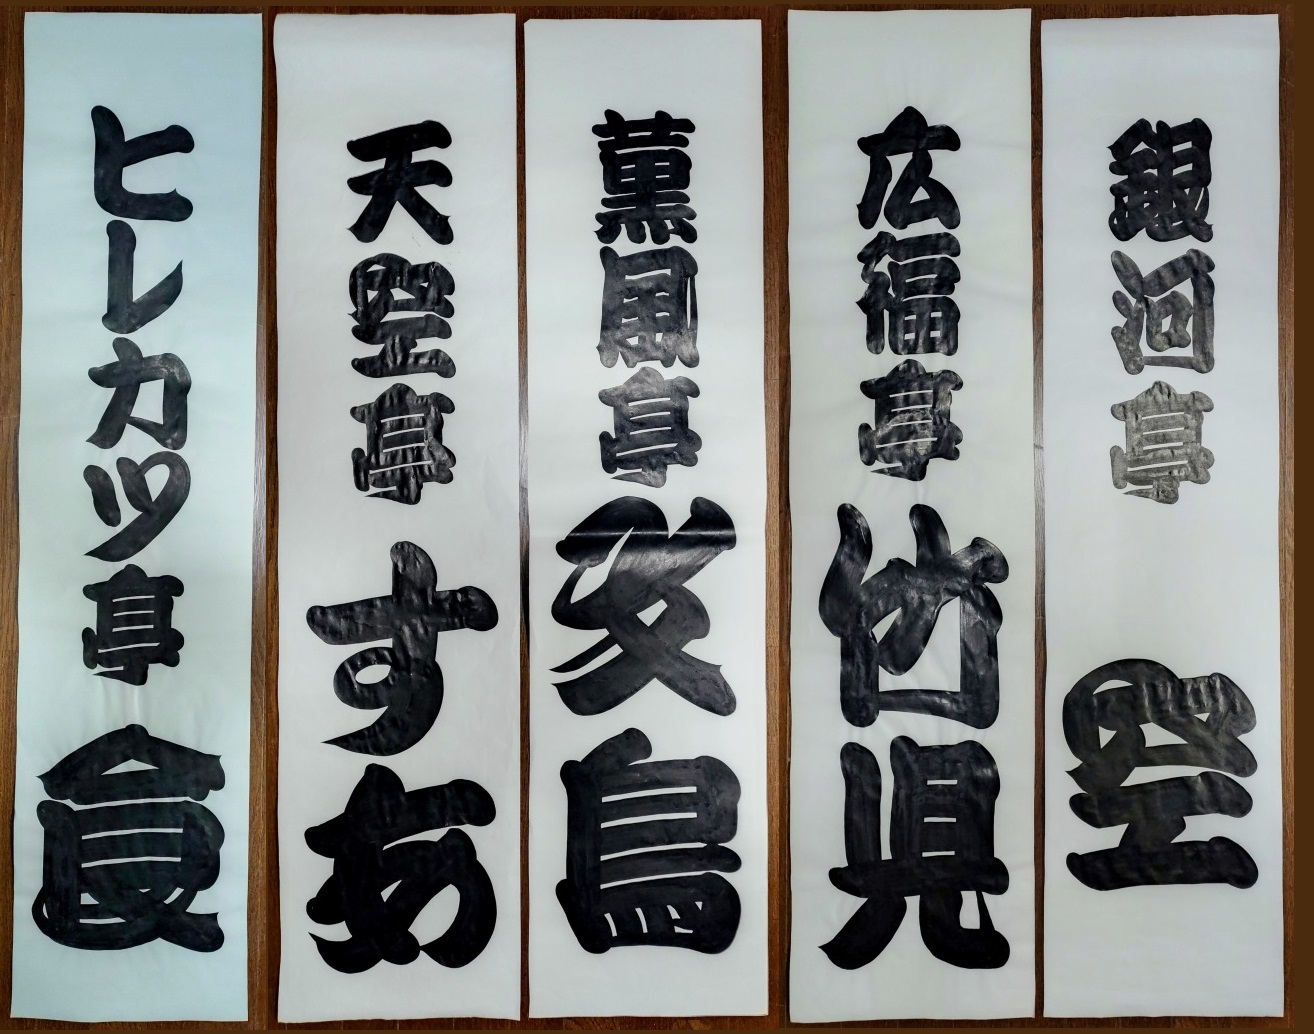 銀河亭 空
広福亭 竹児
薫風亭 文鳥
天空亭 すあ
ヒレカツ亭 食